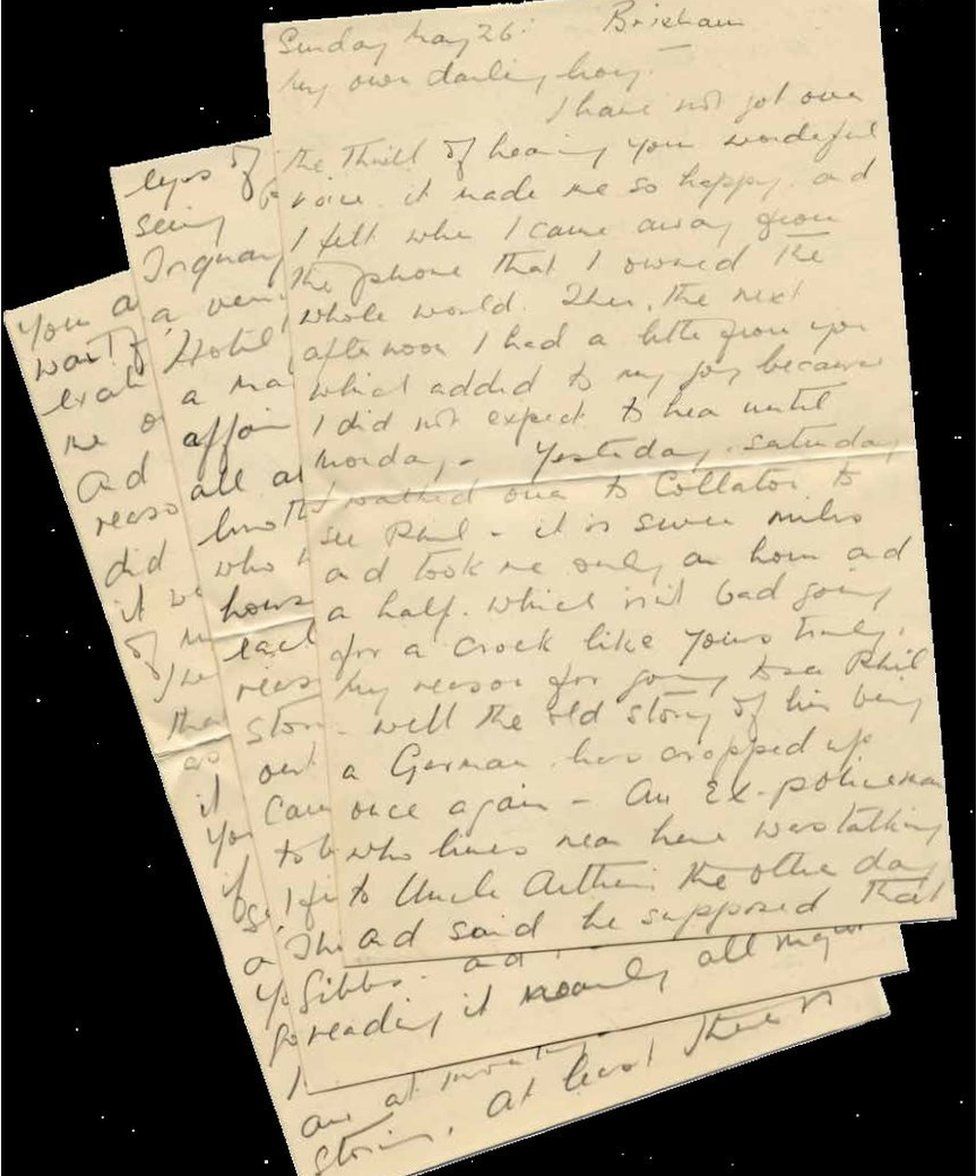 Sunday May 26. Brixham
My own darling boy.
I have not got over
the thrill of hearing your wonderful
voice. it made me so happy. and
I felt when I came away from
the phone that I owned the
whole world. Then, the next
afternoon I had a letter from you
which added to my joy because
I did not expect to hear until
Monday - Yesterday. Saturday
I walked over to Collaton to
see Phil - it is seven miles
and took me only an hour and
a half. which isn't bad going
for a crock like yours truly.
My reason for going to see Phil
- well the old story of his being
a German has cropped up
once again - An Ex-policeman
who lives near here was talking
to Uncle Arthur the other day
and said he supposed that
eyes of
seeing
Torquay
a very
Hotel
a
affair
all
who
house
reas
out
to b
The
Gibbs. and
reading it nearly all
You a
wait
me o
and
reaso
did
it
of
The
that
as
it
Yo
if
a
at least there is